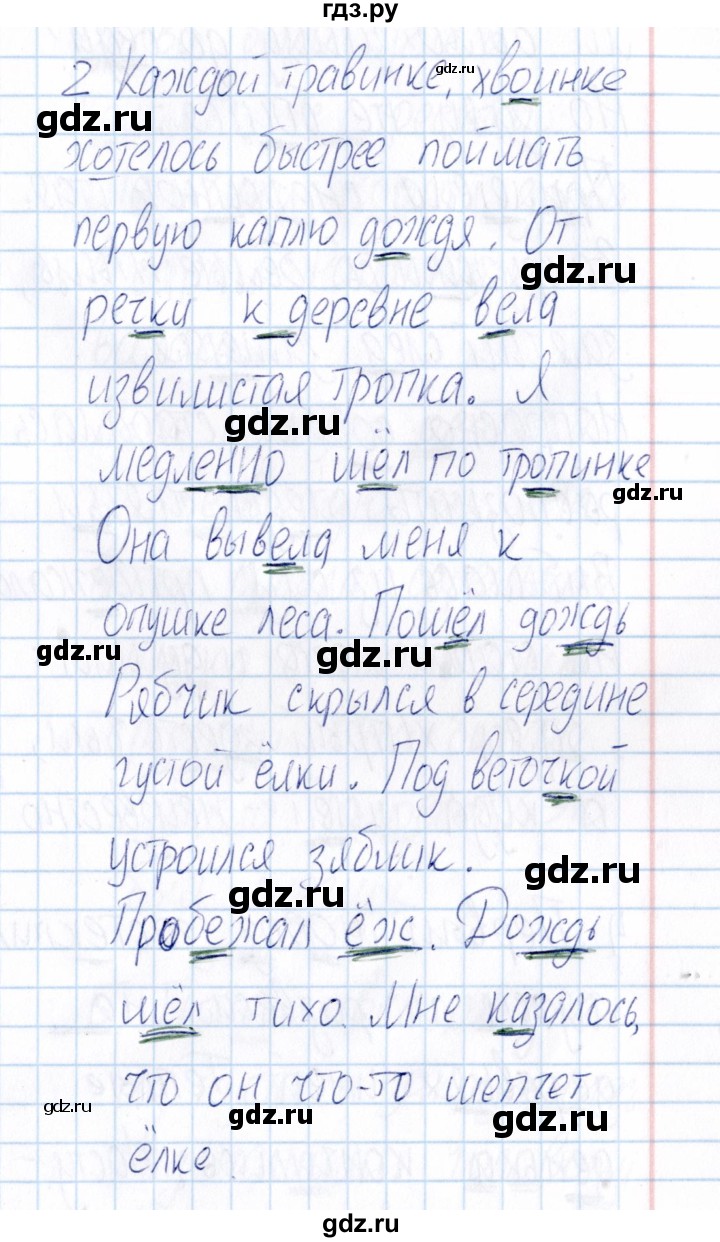 гдз.ру
2 Каждой травинке, хвоинке
gdz.ru
gdz.ru
хотелось быстрее поймать
первую каплю дождя. От
gdz.ru
речки к деревне вела
извилистая тропка. Я
gdz.ru
медленно шёл по тропинке
gdz.ru
Она вывела меня к
опушке леса. Пошёл дождь
gdz.ru
gdz.ru
Рябчик скрылся в середине
густой ёлки. Под веточкой
устроился зяблик.
gdz.ru
gdz.ru
Пробежал ёж. Дождь
шёл тихо. Мне казалось,
что он что-то шепчет
gdz.ru
gdz.ru
gdz.ru
ёлке
gdz.ru